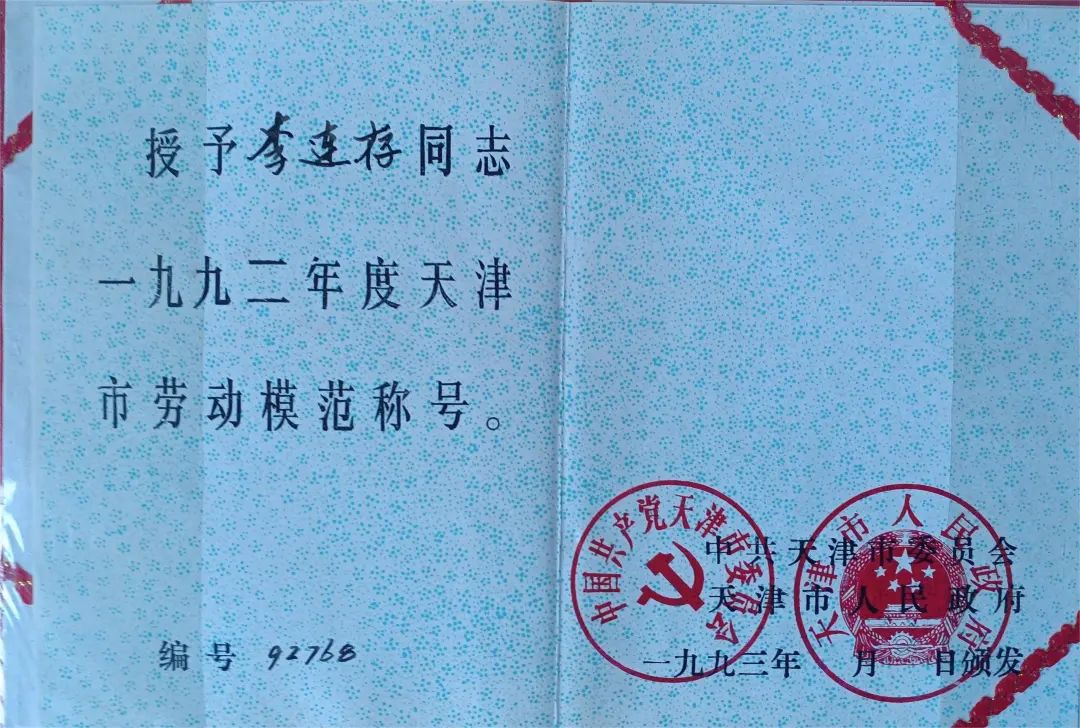 授予李连存同志
一九九二年度天津
市劳动模范称号。
编号 92768
中国共产党天津市委员会
天津市人民政府
中共天津市委员会
天津市人民政府
一九九三年 月 日颁发